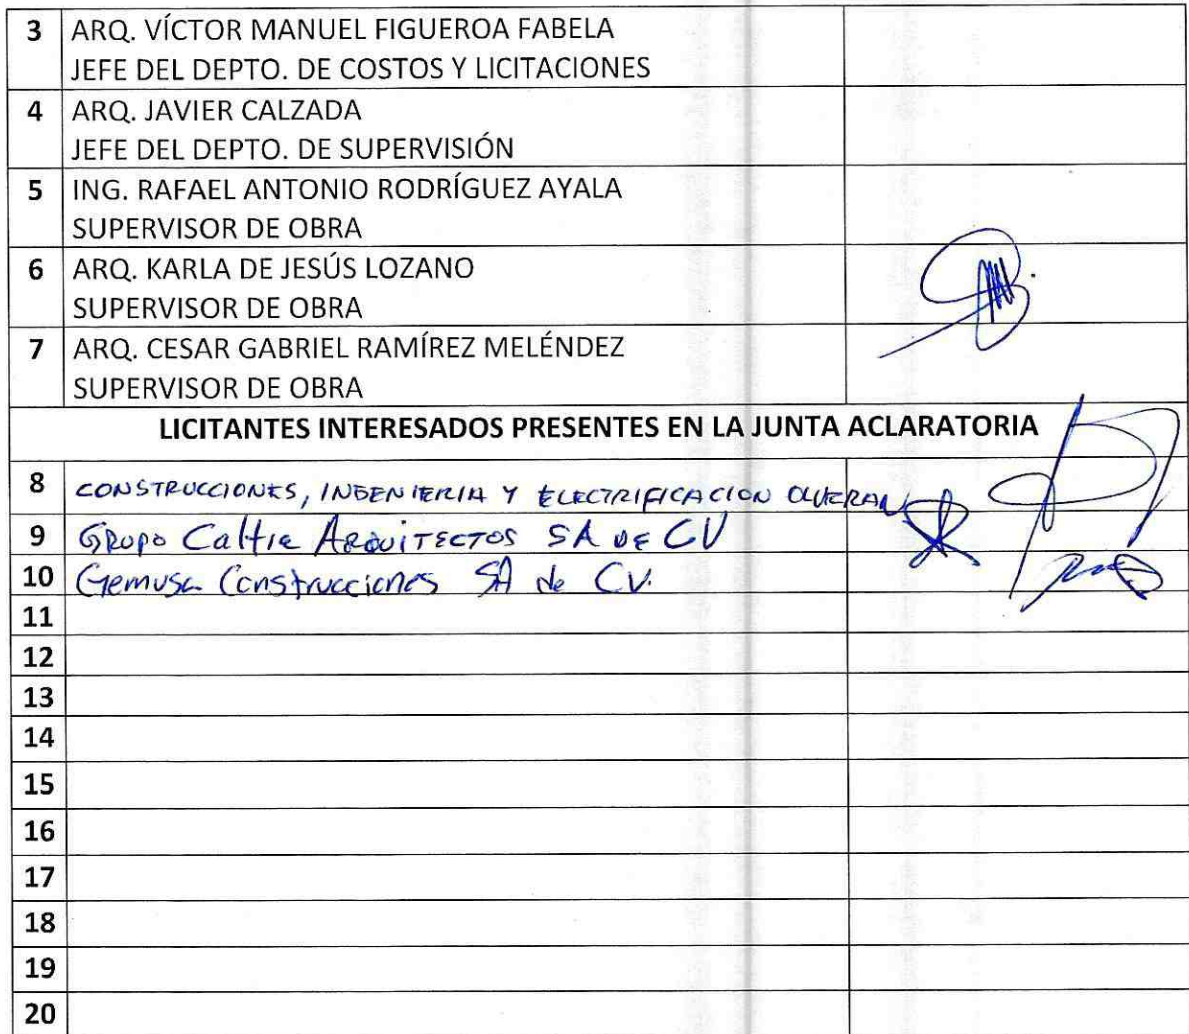 3 ARQ. VÍCTOR MANUEL FIGUEROA FABELA
JEFE DEL DEPTO. DE COSTOS Y LICITACIONES
4 ARQ. JAVIER CALZADA
JEFE DEL DEPTO. DE SUPERVISIÓN
5 ING. RAFAEL ANTONIO RODRÍGUEZ AYALA
SUPERVISOR DE OBRA
6 ARQ. KARLA DE JESÚS LOZANO
SUPERVISOR DE OBRA
7 ARQ. CESAR GABRIEL RAMÍREZ MELÉNDEZ
SUPERVISOR DE OBRA
LICITANTES INTERESADOS PRESENTES EN LA JUNTA ACLARATORIA
8 CONSTRUCCIONES, INGENIERIA Y ELECTRIFICACION
9 GRUPO ARQUITECTOS SA DE CV
10 Gemusa Construcciones SA de CV.
11
12
13
14
15
16
17
18
19
20